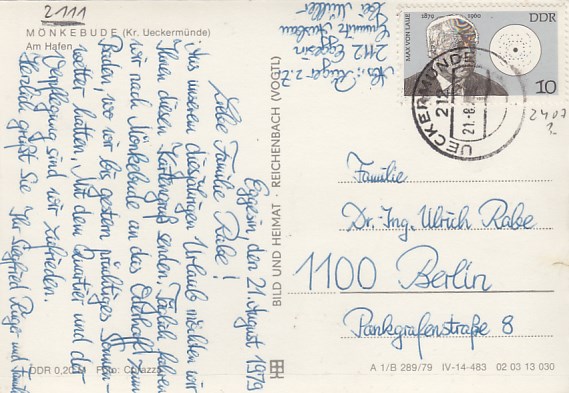 2111
MÖNKEBUDE (Kr. Ueckermünde)
Am Hafen
Eggesin den 21. August 1979
Liebe Familie Rabe!
Aus unserem diesjährigen Urlaub möchten wir
Ihnen diesen Kartengruß senden. Täglich fahren
wir nach Mönkebude an das Oderhaff zum
Baden, wo wir bis gestern prächtiges Sonnen-
wetter hatten. Mit dem Quartier und der
Verpflegung sind wir zufrieden.
Herzlich grüßt Sie Ihr Siegfried Ruger und Familie
DDR 0,20 M Foto:
BILD UND HEIMAT · REICHENBACH (VOGTL)
Abs.: z.Z.
2112 Eggesin
bei Müller
MAX VON LAUE
1879 1960
DDR
10
UECKERMÜNDE
212
21.-8.
2407
2
Familie
Dr.-Ing. Ulrich Rabe
1100 Berlin
Pankgrafenstraße 8
A 1/B 289/79 IV-14-483 02 03 13 030